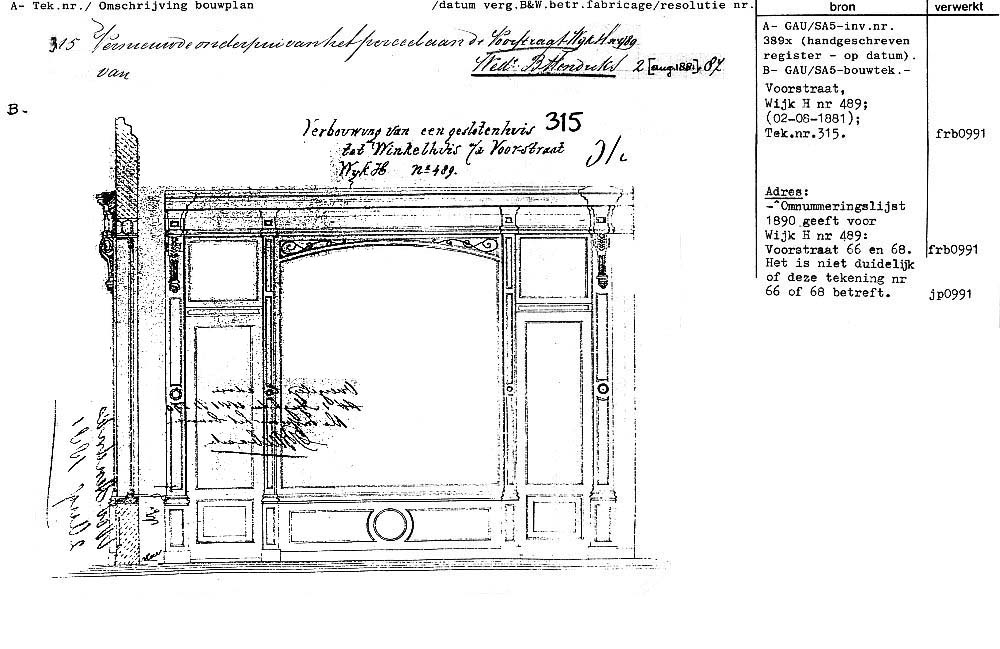 A- Tek.nr./ Omschrijving bouwplan /datum verg.B&W.betr.fabricage/resolutie nr.
bron
verwerkt
315 Vernieuwde onderpui van het perceel aan de Voorstraat Wijk H nr 489
van Wed: B Hendriks 2 [aug.1881] 87
A- GAU/SA5-inv.nr.
389x (handgeschreven
register - op datum).
B- GAU/SA5-bouwtek.-
Voorstraat,
Wijk H nr 489;
(02-08-1881);
Tek.nr.315. frb0991
Adres:
-^Omnummeringslijst
1890 geeft voor
Wijk H nr 489:
Voorstraat 66 en 68. frb0991
Het is niet duidelijk
of deze tekening nr
66 of 68 betreft. jp0991
B-
Verbouwing van een geslotenhuis 315
tot Winkelhuis a/d Voorstraat
Wijk H No 489.